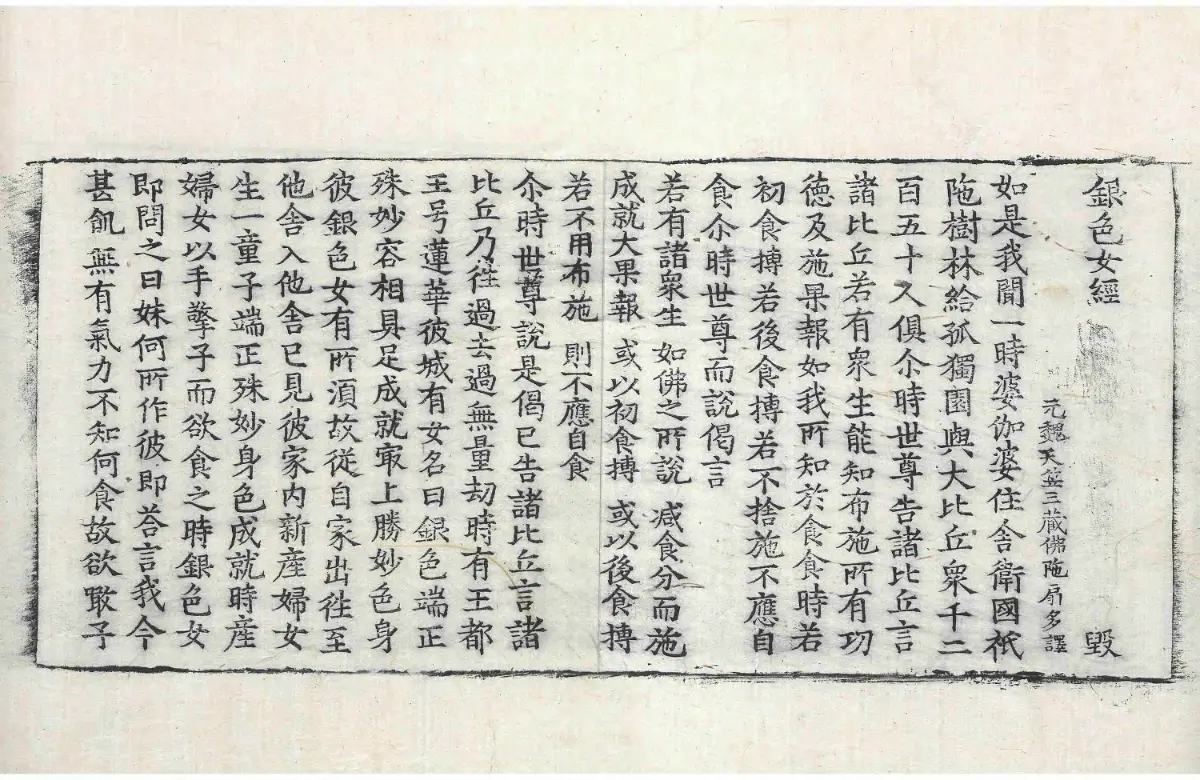 銀色女經 毀
元魏天竺三藏佛陁扇多譯
如是我聞一時婆伽婆住舍衛國祇
陁樹林給孤獨園與大比丘衆千二
百五十人俱尒時世尊告諸比丘言
諸比丘若有衆生能知布施所有功
徳及施果報如我所知於食食時若
初食摶若後食摶若不捨施不應自
食尒時世尊而說偈言
若有諸衆生 如佛之所說 減食分而施
成就大果報 或以初食摶 或以後食摶
若不用布施 則不應自食
尒時世尊說是偈已告諸比丘言諸
比丘乃往過去過無量劫時有王都
王号蓮華彼城有女名曰銀色端正
殊妙容相具足成就冣上勝妙色身
彼銀色女有所湏故從自家出往至
他舍入他舍已見彼家内新産婦女
生一童子端正殊妙身色成就時産
婦女以手擎子而欲食之時銀色女
即問之曰妹何所作彼即荅言我今
甚飢無有氣力不知何食故欲噉子